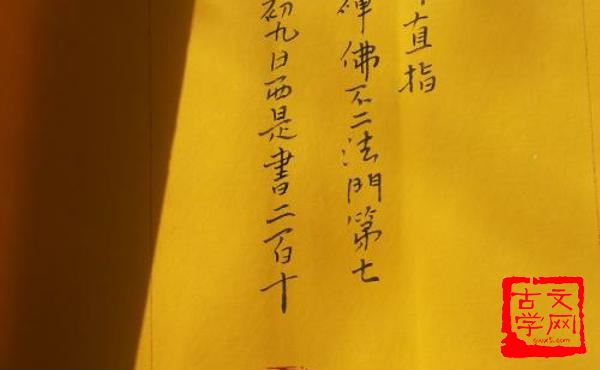 直指
禅佛不二法門第七
初九日西是書二百十
古文
学网
gwx5.com